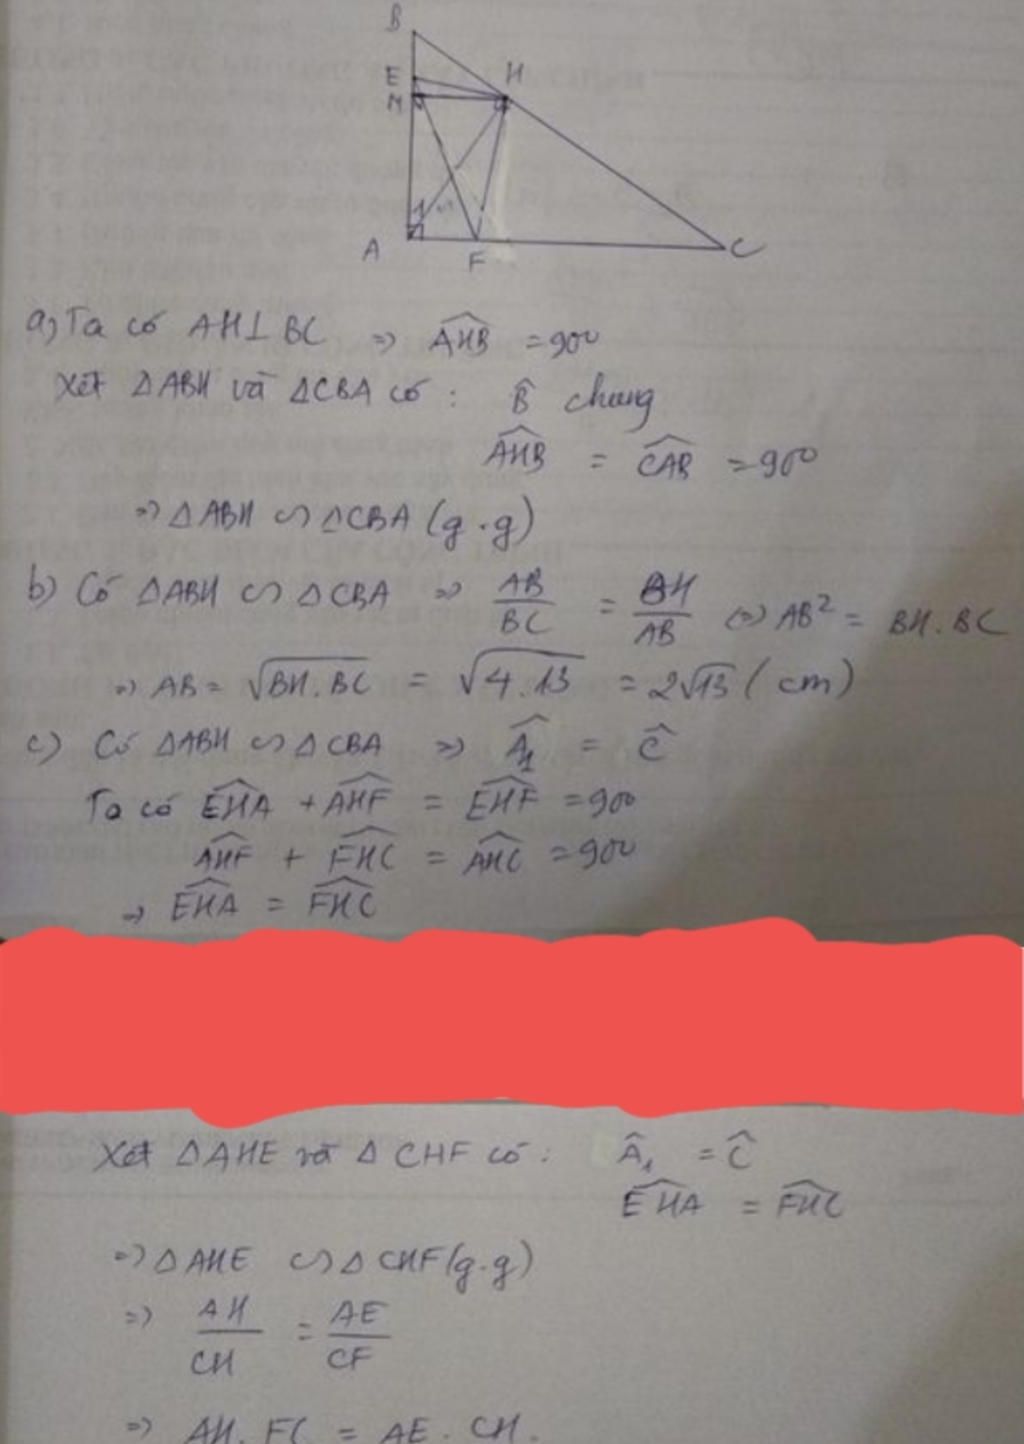 B
E
H
M
1
A
F
C
a) Ta có AH⊥BC => AHB = 90°
Xét ΔABH và ΔCBA có: B̂ chung
AHB = CAB = 90°
=> ΔABH ∽ ΔCBA (g.g)
b) Có ΔABH ∽ ΔCBA => AB/BC = BH/AB <=> AB² = BH.BC
=> AB = √BH.BC = √4.13 = 2√13 (cm)
c) Có ΔABH ∽ ΔCBA => Â₁ = Ĉ
Ta có EHA + AHF = EHF = 90°
AHF + FHC = AHC = 90°
=> EHA = FHC
Xét ΔAHE và ΔCHF có: Â₁ = Ĉ
EHA = FHC
=> ΔAHE ∽ ΔCHF (g.g)
=> AH/CH = AE/CF
=> AH.FC = AE.CH.